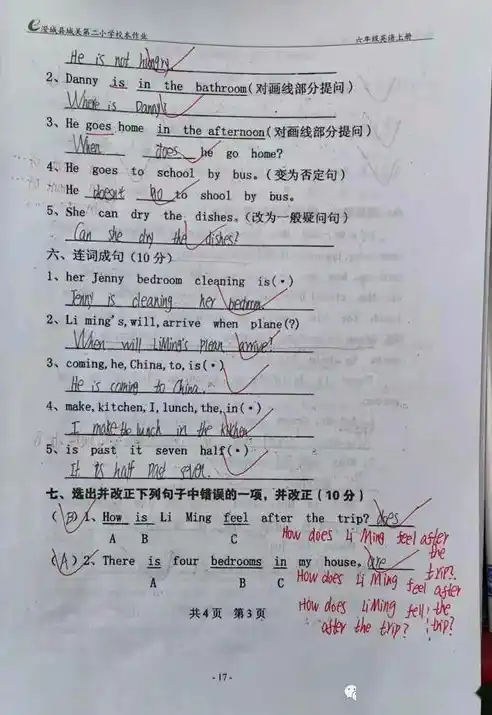 澄城县城关第二小学校本作业 六年级英语上册
He is not hungry.
2、Danny is in the bathroom(对画线部分提问)
Where is Danny?
3、He goes home in the afternoon(对画线部分提问)
When does he go home?
4、He goes to school by bus。(变为否定句)
He doesn't go to shool by bus.
5、She can dry the dishes。(改为一般疑问句)
Can she dry the dishes?
六、连词成句(10分)
1、her Jenny bedroom cleaning is(.)
Jenny is cleaning her bedroom.
2、Li ming's,will,arrive when plane(?)
When will LiMing's plean arrive?
3、coming,he,China,to,is(.)
He is coming to China.
4、make,kitchen,I,lunch,the,in(.)
I make the lunch in the kitchen.
5、is past it seven half(.)
It is half past seven.
七、选出并改正下列句子中错误的一项，并改正(10分)
(B)1、How is Li Ming feel after the trip? does
A B C
How does Li Ming feel after the trip?
(A)2、There is four bedrooms in my house。are
A B C
How does Li Ming feel after the trip?
How does LiMing fell
after the trip?
共4页 第3页
- 17 -